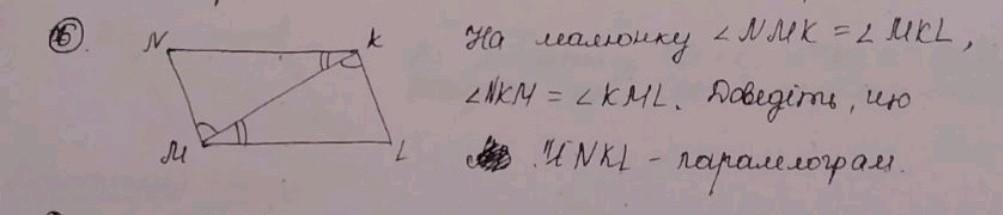 6.
N K
M L
На малюнку ∠NMK = ∠MKL,
∠NKM = ∠KML. Доведіть, що
MNKL - паралелограм.